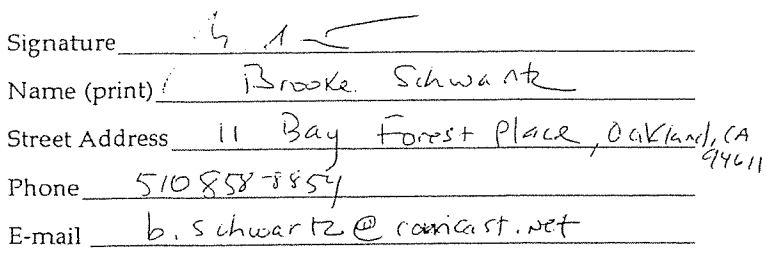 Signature
Name (print) Brooke Schwartz
Street Address 11 Bay Forest Place, Oakland, CA
94611
Phone 510 858-8854
E-mail b.schwartz@comcast.net